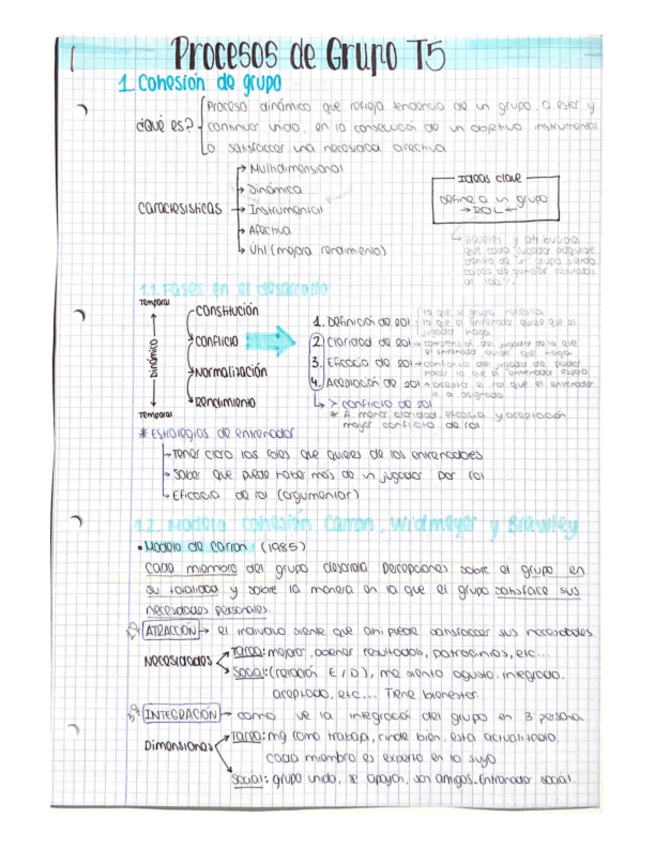 Procesos de Grupo T5
1. Cohesión de grupo
¿Qué es?
Proceso dinámico que refleja tendencia de un grupo, a estar y
continuar unido, en la consecución de un objetivo instrumental
o satisfaccer una necesidad afectiva
Características
Multidimensional
Dinámica
Instrumental
Afectiva
Útil (mejora rendimiento)
Ideas clave
Define a un grupo
→ ROL ←
que cada jugador adquiere
dentro de un grupo
1.1. Fases en el desarrollo
Temporal
Dinámico
Temporal
CONSTITUCIÓN
CONFLICTO
Normalización
Rendimiento
1. Definición de rol
lo que el grupo necesita
lo que el entrenador quiere que el
jugador haga
2. Claridad de rol → comprensión del jugador de lo que
el entrenador quiere que haga
3. Eficacia de rol → confianza del jugador de poder
hacer lo que el entrenador espera
4. Aceptación de rol → acepta el rol que el entrenador
> conflicto de rol
* A menor claridad, eficacia y aceptación
mayor conflicto de rol
* Estrategias de entrenador
Tener claro los roles que quieres de los entrenadores
Saber que puede haber más de un jugador por rol
Eficacia de rol (argumentar)
1.2. Modelo cohesión Carron, Widmeyer y Brawley
• Modelo de Carron: (1985)
Cada miembro del grupo desarrolla percepciones sobre el grupo en
su totalidad y sobre la manera en la que el grupo satisface sus
necesidades personales.
ATRACCIÓN → el individuo siente que ahí puede satisfaccer sus necesidades
Necesidades
Tarea: mejorar, obtener resultados, patrocinios, etc...
Social: (relación E/D), me siento agusto, integrado,
aceptado, etc... Tiene bienestar.
INTEGRACIÓN → como ve la integración del grupo en 3ª persona
Dimensiones
Tarea: mg como trabaja, rinde bien, está actualizado.
Cada miembro es experto en lo suyo
Social: grupo unido, se apoyan, son amigos. Entrenador social.